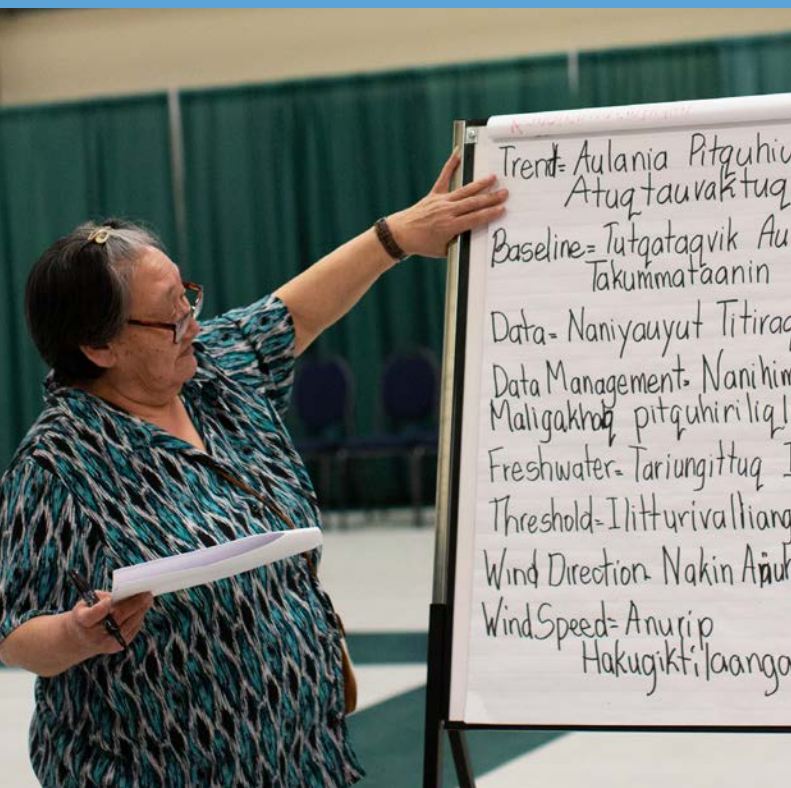 Trend= Aulania Pitquhiu
Atuqtauvaktuq
Baseline= Tutqataqvik Au
Takummataanin
Data= Naniyauyut Titiraq
Data Management= Nanihim
Maligakhaq pitquhiriliql
Freshwater= Tariungittuq I
Threshold=Ilitturivalliang
Wind Direction= Nakin
Wind Speed= Anurip
Hakugiktilaanga